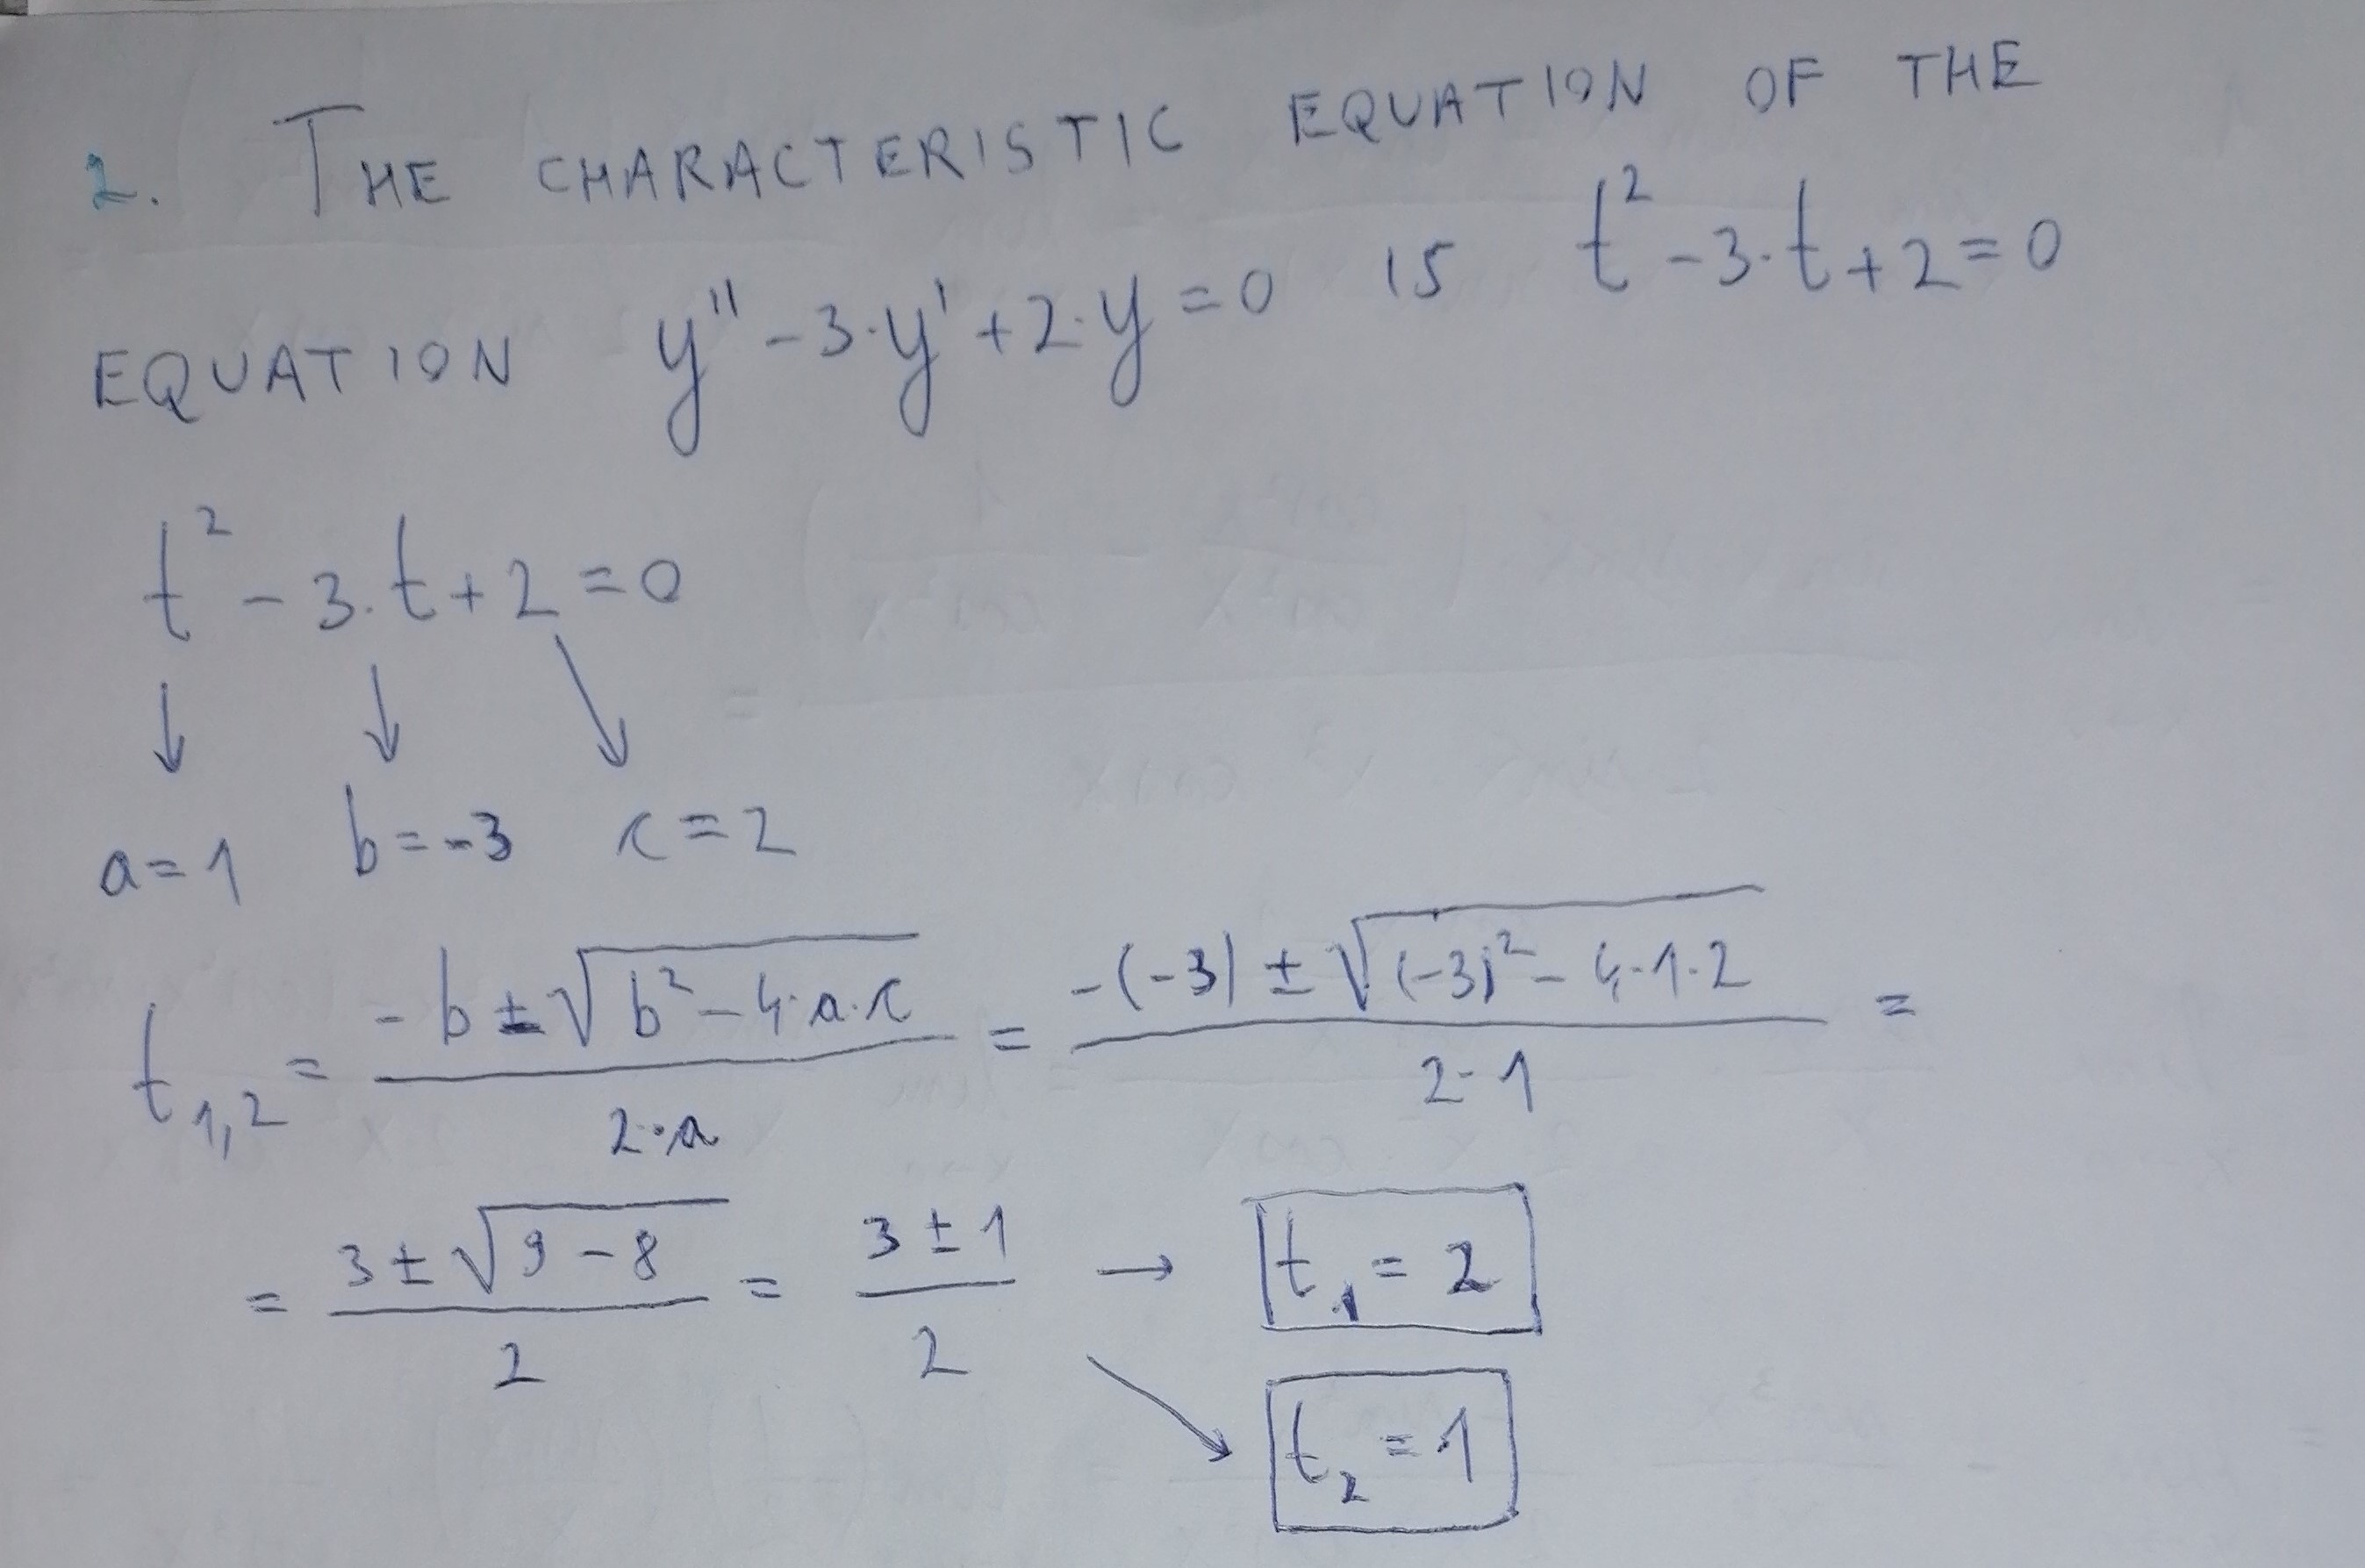 2. THE CHARACTERISTIC EQUATION OF THE
EQUATION y'' - 3·y' + 2·y = 0 IS t² - 3·t + 2 = 0
t² - 3·t + 2 = 0
↓ ↓ ↘
a = 1 b = -3 c = 2
t₁,₂ = (-b ± √(b² - 4·a·c))/(2·a) = (-(-3) ± √((-3)² - 4·1·2))/(2·1) =
= (3 ± √(9 - 8))/2 = (3 ± 1)/2 → t₁ = 2
↘ t₂ = 1